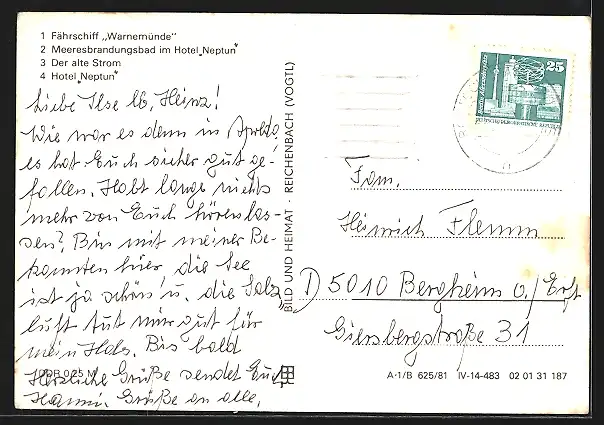 1 Fährschiff „Warnemünde"
2 Meeresbrandungsbad im Hotel „Neptun"
3 Der alte Strom
4 Hotel „Neptun"
Liebe Ilse u. Heinz!
Wie war es denn in Apolda,
es hat Euch sicher gut ge-
fallen. Habt lange nichts
mehr von Euch hören las-
sen? Bin mit meiner Be-
kannten hier, die See
ist ja schön u. die Salz-
luft tut mir gut für
mein Hals. Bis bald
Herzliche Grüße sendet Euch
Hanni. Grüße an alle.
DDR 0,25 M
BILD UND HEIMAT · REICHENBACH (VOGTL)
25
Fam.
Heinrich Flemm
D 5010 Bergheim a./Erft
Giersbergstraße 31
A·1/B 625/81 IV-14-483 02 01 31 187